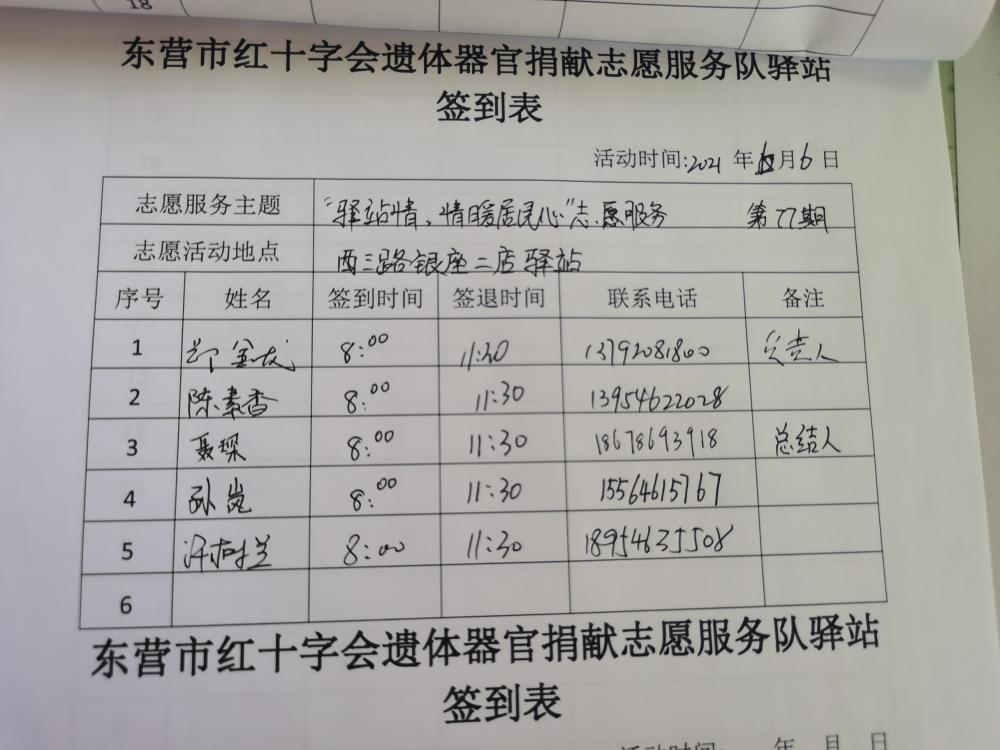 18
东营市红十字会遗体器官捐献志愿服务队驿站
签到表
活动时间:2021 年 月 6 日
志愿服务主题 "驿站情、情暖居民心"志愿服务 第77期
志愿活动地点 西三路银座二店驿站
序号 姓名 签到时间 签退时间 联系电话 备注
1 郑金龙 8:00 11:30 13792081800 负责人
2 陈素香 8:00 11:30 13954622028
3 聂琛 8:00 11:30 18678693918 总结人
4 孙岚 8:00 11:30 15564615767
5 许树兰 8:00 11:30 18954635508
6
东营市红十字会遗体器官捐献志愿服务队驿站
签到表
活动时间: 年 月 日